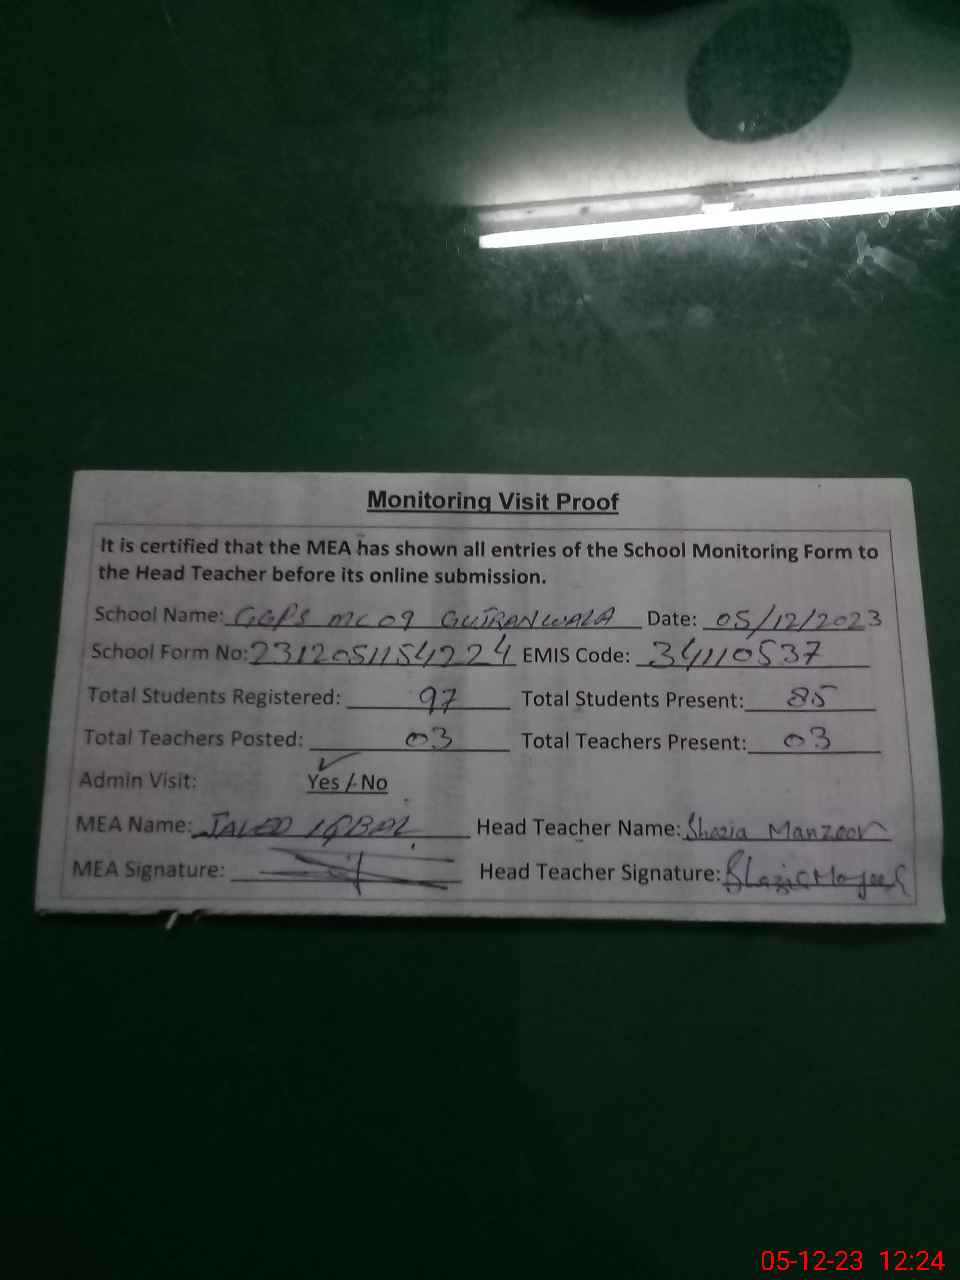 Monitoring Visit Proof
It is certified that the MEA has shown all entries of the School Monitoring Form to
the Head Teacher before its online submission.
School Name: GGPS MC 09 GUJRANWALA Date: 05/12/2023
School Form No: 2312051154224 EMIS Code: 34110537
Total Students Registered: 97 Total Students Present: 85
Total Teachers Posted: 03 Total Teachers Present: 03
Admin Visit: Yes / No
MEA Name: JAVED IQBAL Head Teacher Name: Shazia Manzoor
MEA Signature: Head Teacher Signature:
05-12-23 12:24